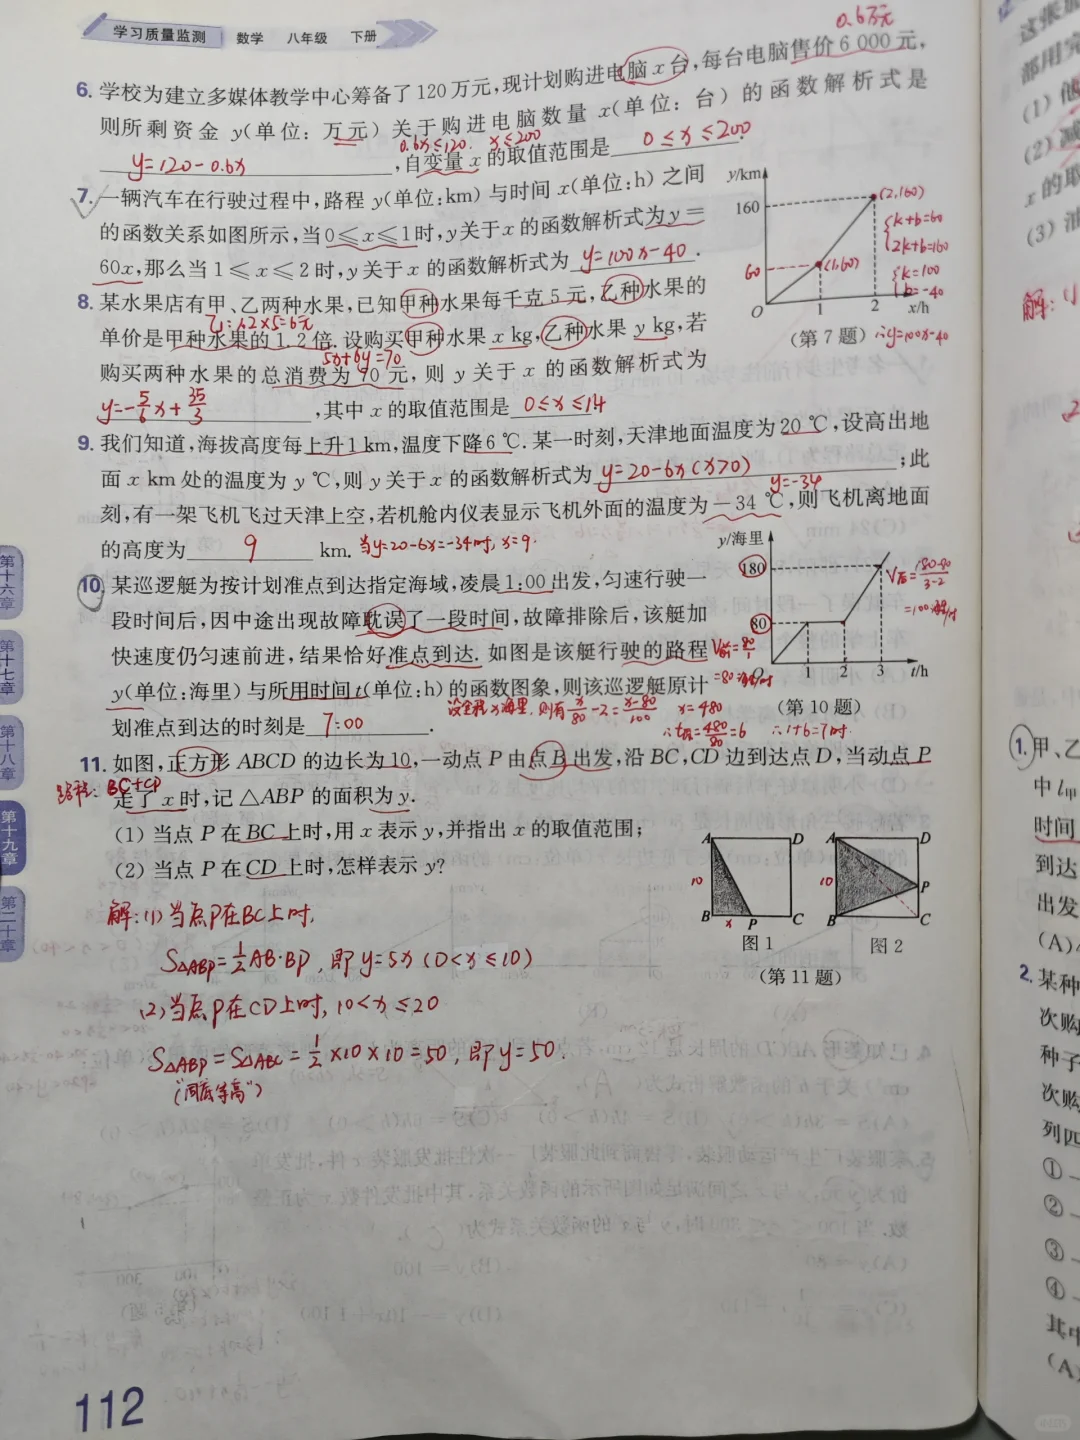 学习质量监测 数学 八年级 下册
0.6万元
6. 学校为建立多媒体教学中心筹备了120万元,现计划购进电脑x台,每台电脑售价6 000元,
则所剩资金 y(单位: 万元) 关于购进电脑数量 x(单位: 台) 的函数解析式是
0.6x≤120. x≤200
y=120-0.6x ,自变量 x 的取值范围是 0≤x≤200 .
7. 一辆汽车在行驶过程中,路程 y(单位:km) 与时间 x(单位:h) 之间
的函数关系如图所示,当0≤x≤1时,y关于x的函数解析式为y=
60x,那么当1≤x≤2时,y关于x的函数解析式为 y=100x-40 .
y/km
160
60
(2,160)
(1,60)
O 1 2 x/h
k+b=60
2k+b=160
k=100
b=-40
(第 7 题) ∴y=100x-40
8. 某水果店有甲、乙两种水果,已知甲种水果每千克5元,乙种水果的
乙:1.2×5=6元
单价是甲种水果的1.2倍.设购买甲种水果 x kg,乙种水果 y kg,若
5x+6y=70
购买两种水果的总消费为70元,则 y 关于 x 的函数解析式为
y=-5/6x+35/3 ,其中x的取值范围是 0≤x≤14
9. 我们知道,海拔高度每上升1 km,温度下降6 ℃.某一时刻,天津地面温度为20 ℃,设高出地
面 x km 处的温度为 y ℃,则 y 关于 x 的函数解析式为 y=20-6x(x>0) ;此
y=-34
刻,有一架飞机飞过天津上空,若机舱内仪表显示飞机外面的温度为-34 ℃,则飞机离地面
的高度为 9 km. 当y=20-6x=-34时,x=9.
10. 某巡逻艇为按计划准点到达指定海域,凌晨1:00出发,匀速行驶一
段时间后,因中途出现故障耽误了一段时间,故障排除后,该艇加
快速度仍匀速前进,结果恰好准点到达.如图是该艇行驶的路程
y(单位:海里)与所用时间t(单位:h)的函数图象,则该巡逻艇原计
设全程x海里.则有x/80-2=x-80/100 x=480
划准点到达的时刻是 7:00 .
∴t原=480/80=6 ∴1+6=7时.
y/海里
180
80
O 1 2 3 t/h
V后=180-80/3-2
=100海里/时
V前=80/1
=80海里/时
(第 10 题)
11. 如图,正方形 ABCD 的边长为10,一动点 P 由点 B 出发,沿 BC,CD 边到达点 D,当动点 P
路程: BC+CP
走了 x 时,记△ABP 的面积为 y.
(1) 当点 P 在 BC 上时,用 x 表示 y,并指出 x 的取值范围;
(2) 当点 P 在 CD 上时,怎样表示 y?
A D
10
B x P C
图 1
A D
10
P
B C
图 2
(第 11 题)
解:(1)当点P在BC上时,
S△ABP=1/2AB·BP,即y=5x(0<x≤10)
(2)当点P在CD上时,10<x≤20
S△ABP=S△ABC=1/2×10×10=50,即y=50.
("同底等高")
第十六章
第十七章
第十八章
第十九章
第二十章
112
这张
都用完
(1) 他
(2) 减
x 的取
(3) 油
解:(1
1. 甲、乙
中 l甲
时间
到达
出发
(A)
2. 某种
次购
种子
次购
列四
①
②
③
④
其中
(A)